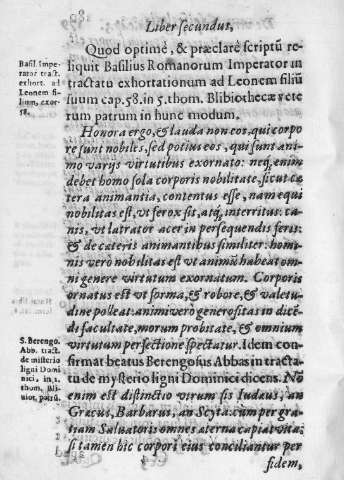 Liber secundus,
Quod optimè, & præclarè scriptũ re-
liquit Basilius Romanorum Imperator in
tractatu exhortationum ad Leonem filiũ
suum cap. 58. in 5. thom. Blibiothecæ vete
rum patrum in hunc modum.
Basil. Impe-
rator tract.
exhort. ad
Leonem fi-
lium, exor-
58.
Honora ergo, & lauda non eos, qui corpo
re sunt nobiles, sed potius eos, qui sunt ani
mo varijs virtutibus exornato: neq, enim
debet homo sola corporis nobilitate, sicut cæ
tera animantia, contentus esse, nam equi
nobilitas est, vt ferox sit, atq, interritus: ca-
nis, vt latrator acer in persequendis feris:
& de cæteris animantibus similiter: homi-
nis verò nobilitas est vt animũ habeat om-
ni genere virtutum exornatum. Corporis
ornatus est vt forma, & robore, & valetu-
dine polleat: animi verò generositas in dicẽ
di facultate, morum probitate, & omnium
virtutum perfectione spectatur. Idem con-
firmat beatus Berengosius Abbas in tracta-
tu de mysterio ligni Dominici dicens. Nõ
S. Berengo.
Abb. tract.
de misterio
ligni Domi
nici, in 2.
thom. Bli-
biot. patrũ.
enim est distinctio virum sis Iudæus, an
Græcus, Barbarus, an Scyta: cum per gra-
tiam Saluatoris omnes æterna capiat vita:
si tamen hic corpori eius concilientur per
fidem,